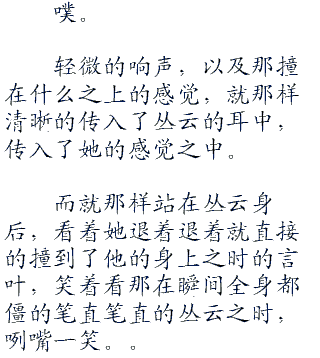 噗。
轻微的响声，以及那撞
在什么之上的感觉，就那样
清晰的传入了丛云的耳中，
传入了她的感觉之中。
而就那样站在丛云身
后，看着她退着退着就直接
的撞到了他的身上之时的言
叶，笑着看那在瞬间全身都
僵的笔直笔直的丛云之时，
咧嘴一笑。。